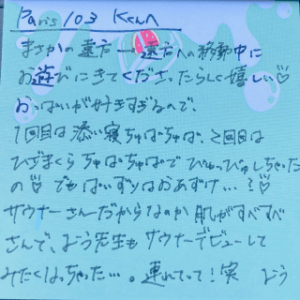 Paris/103 Kくんへ
まさかの遠方→遠方への移動中に
お遊びにきてくださったらしく嬉しい♡
おっぱいが好きすぎるので、
1回目は添い寝ちゅぱちゅぱ、2回目は
ひざまくらちゅぱちゅぱでびゅっびゅしちゃった
の♡ でもぱいずりはおあずけ…?♡
サウナーさんだからなのか肌がすべすべ
さんで、よう先生もサウナーデビューして
みたくなっちゃった…。連れてって!笑 よう